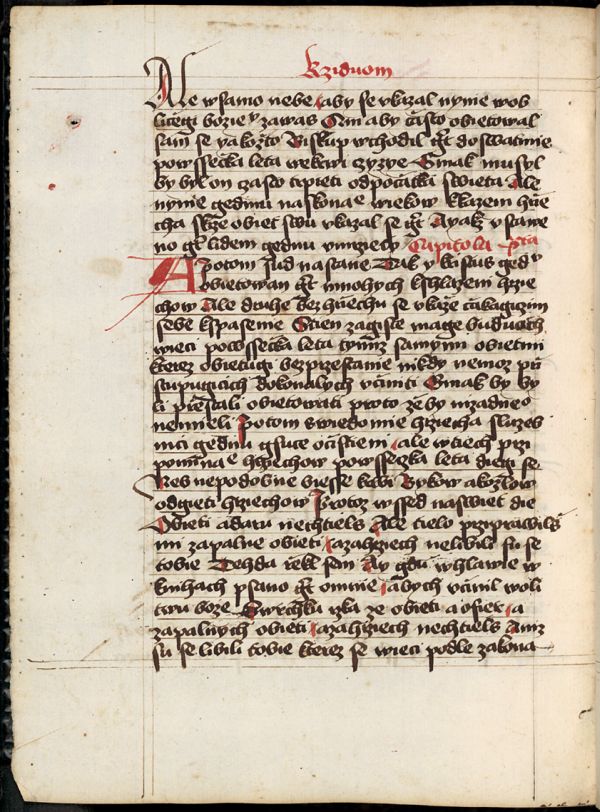 kziduom
Ale wsamo nebe aby se vkazal nynie wob
liczegi bozie y zawas Ani aby czasto obietowal
sam se yakozto Biskup wchodil gest doswatinie
powssecka leta wekrwi czyzye Ginak musyl
by byl on czasto trpieti odpoczatka swieta Ale
nynie gednu naskonanie wiekow kkazeni hrzie
cha skrze obiet swu vkazal se gest A yakz vstawe
no gest lidem gednu vmrzieti Capitola
A potom sud nastane Tak y kristus gedny
obietowan gest mnohych kshlazeni hrzie
chow Ale druhe bez hrziechu se vkaze czakagiczim
sebe kspaseni Stien zagiste mage buducich
wieci powssecka leta tymiz samymi obietmi
kterez obietugi bezprzestanie nikdy nemoz przi
stupugicich dokonalych vcziniti Ginak by by
li przestali obietowati proto ze by nizadneo
nemieli potom swiedomie hrziecha sluzeb
nici gednu gsuce ocistieni ale wtiech przi
pominanie hrziechow powsseczka leta diegi se
Nes nepodobne gesse krwi Bykow akozlow
odgieti hrziechow Protoz wssed naswiet die
Obieti adaru nechtiels Ale tielo prziprawils
mi zapalne obieti azahrziech nelibili su se
tobie Tehda rzekl sem Ay gdu whlawie w
knihach psano gest omnie abych vczinil woli
twu boze Swrchku rzka ze obieti a ofier a
zapalnych obieti azahrziech nechtiels Aniz
su se libili tobie kterez se wieci podle zakona